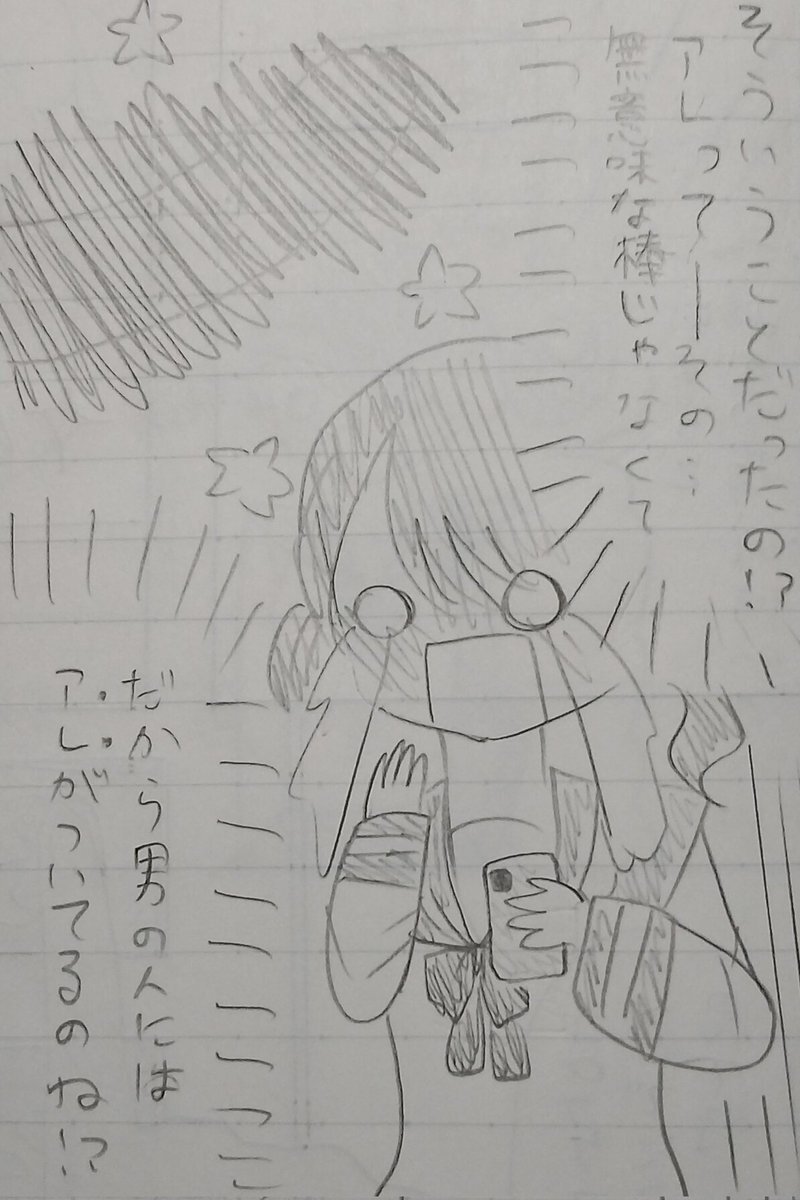 そういうことだったの!?
アレって――その…
無意味な棒じゃなくて
だから男の人には
アレがついてるのね!?